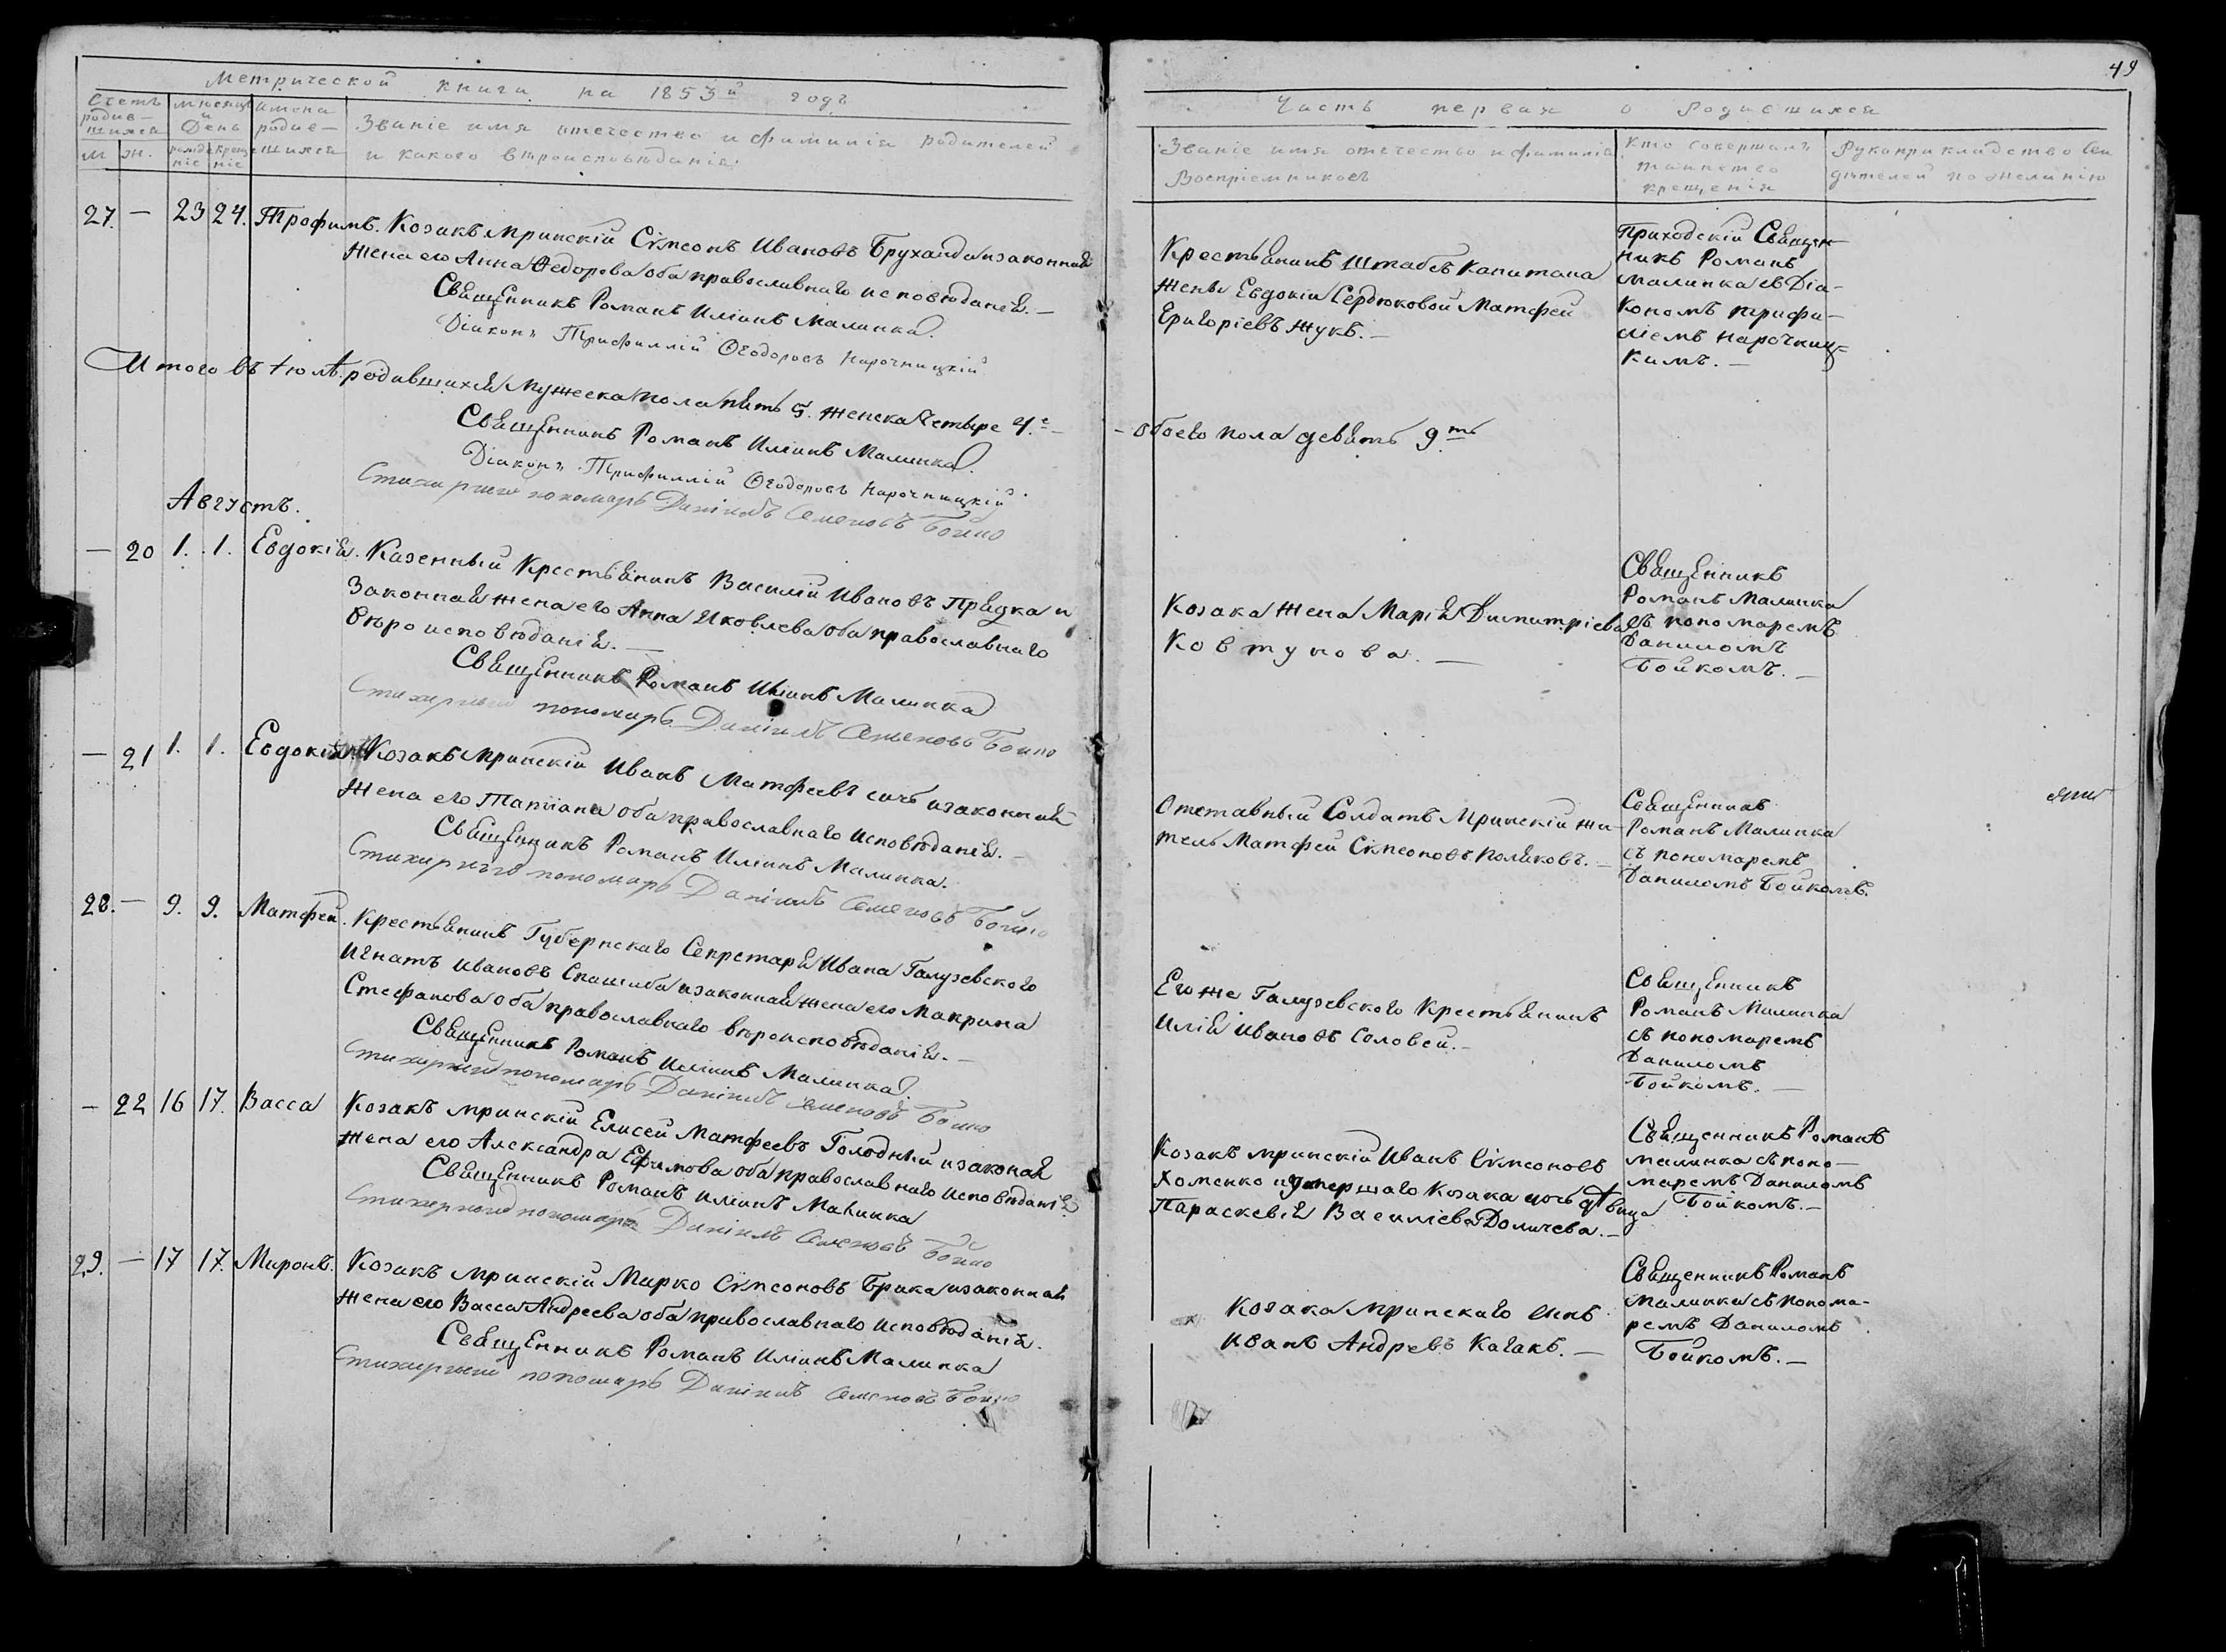 49
Метрической книги на 1853й годъ
Часть первая о родившихся
Счетъ родив-шихся
М. Ж.
Мѣсяцъ и День
рожденіе крещеніе
имена родив-шихся
Званіе имя отечество и фамилія родителей
и какого вѣроисповѣданія.
Званіе имя отечество и фамилія
Воспріемниковъ
Кто совершалъ
таинство
крещенія
Рукоприкладство Сви
дѣтелей по желанію
27. — 23 24. Трофимъ. Козакъ мринскій Сѵмеонъ Ивановъ Бруханда и законная
жена его Анна Ѳедорова оба православнаго исповѣданія. —
Священникъ Романъ Иліинъ Малинка.
Діаконъ Трифиллій Ѳеодоровъ Нарочницкій
Крестьянинъ Штабсъ Капитана
жены Евдокіи Сердюковой Матфей
Григоріевъ Жукъ. —
Приходскій Священ-
никъ Романъ
Малинка съ Діа-
кономъ Трифи-
ліемъ Нарочниц-
кимъ. —
Итого въ Іюлѣ родившихся Мужеска пола пять 5. женска Четыре 4.е —
— обоего пола девять 9ть
Священникъ Романъ Иліинъ Малинка.
Діаконъ Трифиллій Ѳеодоровъ Нарочницкій.
Стихарный пономарь Даніилъ Семеновъ Бойко
Августъ.
— 20 1. 1. Евдокія. Казенный Крестьянинъ Василій Ивановъ Прядка и
Законная жена его Анна Яковлева оба православнаго
вѣроисповѣданія. —
Священникъ Романъ Иліинъ Малинка
Стихарный пономарь Даніилъ Семеновъ Бойко
Козака жена Марія Димитріева
Ковтунова. —
Священникъ
Романъ Малинка
съ пономаремъ
Даниломъ
Бойкомъ. —
— 21 1. 1. Евдокія Козакъ Мринскій Иванъ Матфеевъ сичъ и законная
жена его Татіана оба православнаго исповѣданія. —
Священникъ Романъ Иліинъ Малинка.
Стихарный пономарь Даніилъ Семеновъ Бойко
Отставный Солдатъ Мринскій жи-
тель Матфей Сѵмеоновъ Поляковъ. —
Священникъ
Романъ Малинка
съ пономаремъ
Даниломъ Бойкомъ.
28. — 9. 9. Матфей. Крестьянинъ Губернскаго Секретаря Ивана Галузевского
Игнатъ Ивановъ и законная жена его Макрина
Стефанова оба православнаго вѣроисповѣданія. —
Священникъ Романъ Иліинъ Малинка.
Стихарный пономарь Даніилъ Семеновъ Бойко
Его же Галузевского Крестьянинъ
Илія Ивановъ Соловей. —
Священникъ
Романъ Малинка
съ пономаремъ
Даниломъ
Бойкомъ. —
— 22 16 17. Васса Козакъ мринскій Елисей Матфеевъ Голодный и законая
жена его Александра Ефимова оба православнаго исповѣданія
Священникъ Романъ Иліинъ Малинка
Стихарный пономарь Даніилъ Семеновъ Бойко
Козакъ мринскій Иванъ Сѵмеоновъ
Хоменко и умершаго Козака дочь дѣвица
Параскевія Василіева Доличева. —
Священникъ Романъ
Малинка съ поно-
маремъ Даниломъ
Бойкомъ. —
29. — 17 17. Миронъ. Козакъ мринскій Мирко Сѵмеоновъ Брика и законная
жена его Васса Андреева оба православнаго исповѣданія.
Священникъ Романъ Иліинъ Малинка
Стихарный пономарь Даніилъ Семеновъ Бойко
Козака мринскаго сынъ
Иванъ Андреевъ Качакъ. —
Священникъ Романъ
Малинка съ понома-
ремъ Даниломъ
Бойкомъ. —